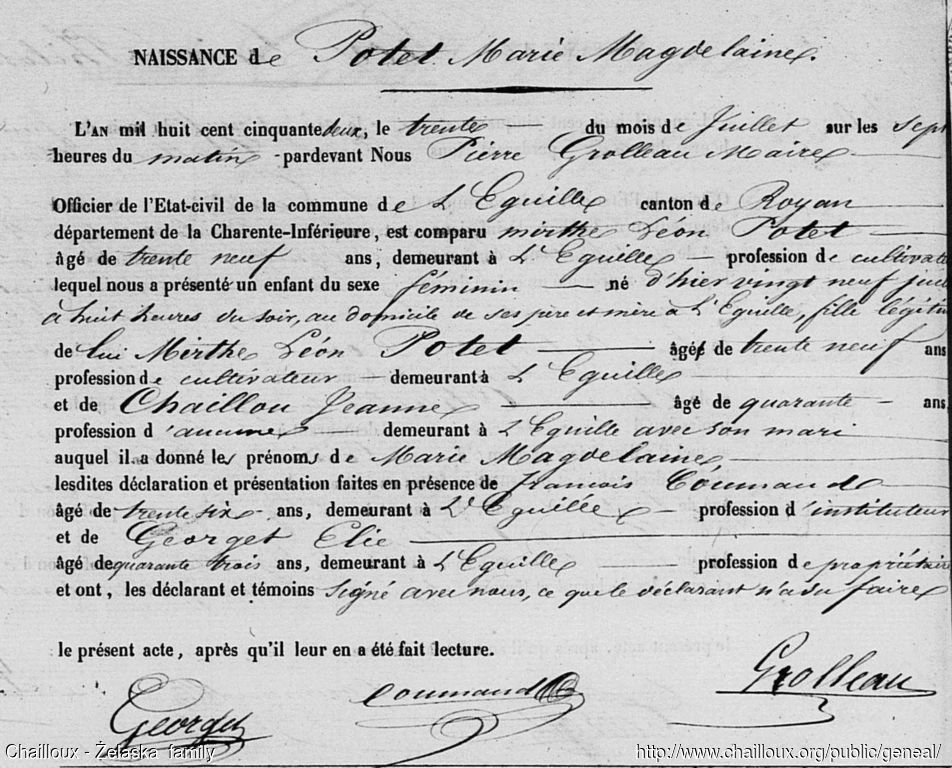 NAISSANCE de Potet Marie Magdelaine.
L'AN mil huit cent cinquante deux, le trente du mois de Juillet sur les sept
heures du matin pardevant Nous Pierre Grolleau Maire
Officier de l'Etat-civil de la commune de L'Eguille canton de Royan
département de la Charente-Inférieure, est comparu mirthe Léon Potet
âgé de trente neuf ans, demeurant à L'Eguille profession de cultivate
lequel nous a présenté un enfant du sexe féminin né d'hier vingt neuf juil
à huit heures du soir, au domicile de ses père et mère à L'Eguille, fille légitim
de lui Mirthe Léon Potet âgé de trente neuf ans
profession de cultivateur demeurant à L'Eguille
et de Chaillou Jeanne âgé de quarante ans
profession d'aucune demeurant à L'Eguille avec son mari
auquel il a donné les prénoms de Marie Magdelaine
lesdites déclaration et présentation faites en présence de francois Coumand
âgé de trente six ans, demeurant à L'Eguille profession d'instituteur
et de Georget Elie
âgé de quarante trois ans, demeurant à L'Eguille profession de propriétaire
et ont, les déclarant et témoins signé avec nous, ce que le déclarant n'a su faire
le présent acte, après qu'il leur en a été fait lecture.
Georget coumand Grolleau
Chailloux - Żelaska family http://www.chailloux.org/public/geneal/